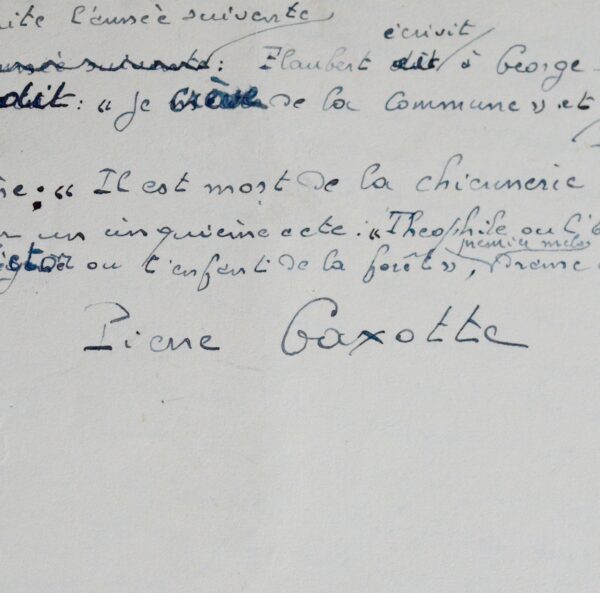 ite l'année suivente
année suivante : Flaubert dit écrivit à George
dit : « Je crève de la Commune » et
ne : « Il est mort de la chiennerie
un cinquième acte : « Théophile ou l'
Victor ou l'enfant de la forêt », premier mélo drame
Pierre Gaxotte